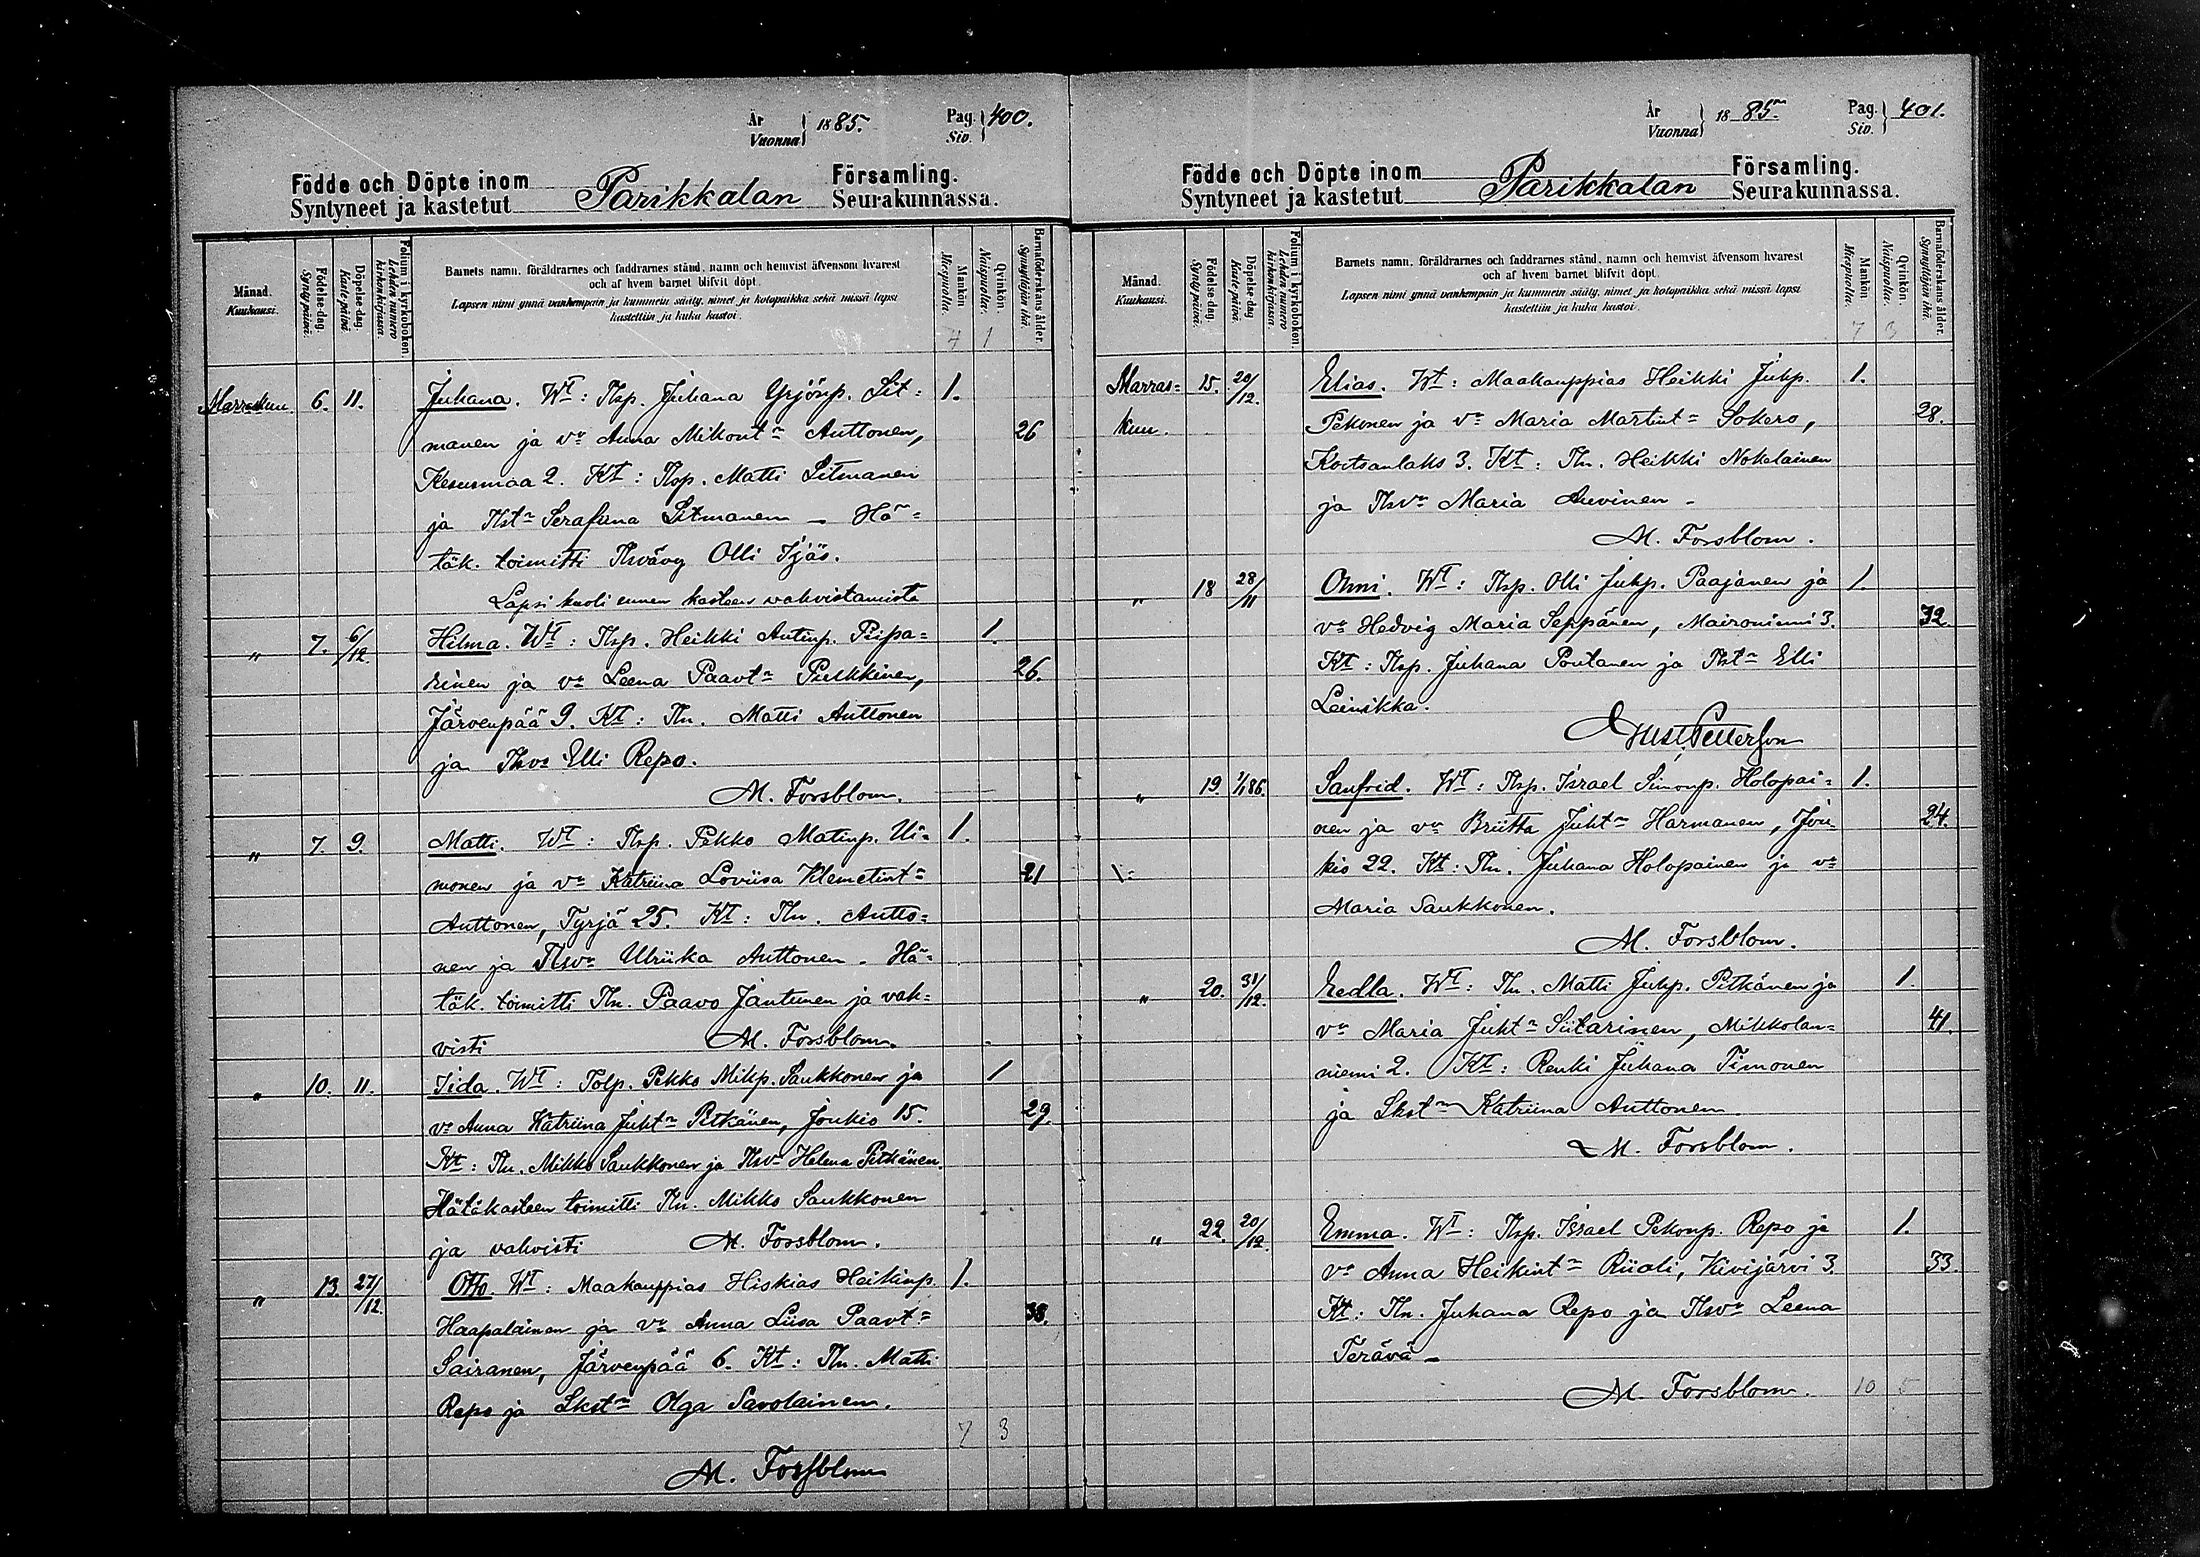 År
Vuonna } 1885. Pag. Siv. } 400.
Födde och Döpte inom Församling.
Syntyneet ja kastetut Parikkalan Seurakunnassa.
Månad. Kuukausi.
Födelse-dag. Synty päivä.
Döpelse-dag. Kaste-päivä.
Folium i kyrkoboken. Lehden numero kirkonkirjassa.
Barnets namn, föräldrarnes och faddrarnes stånd, namn och hemvist äfvensom hvarest
och af hvem barnet blifvit döpt.
Lapsen nimi ynnä vanhempain ja kummein sääty, nimet ja kotopaikka sekä missä lapsi
kastettiin ja kuka kastoi.
Mankön. Miespuolia.
Qvinkön. Naispuolia.
Barnaföderskans ålder. Synnyttäjän ikä.
4 1
Marraskuu 6. 11. Juhana. Wt: Tlsp. Juhana Yrjönp. Sit= 1.
manen ja vo Anna Mikont= Anttonen, 26
Kesusmaa 2. Kt: Tlsp. Matti Sitmanen
ja Tlst= Serafiina Sitmanen – Hä=
täk. toimitti Tlsvävy Olli Ijäs.
Lapsi kuoli ennen kasteen vahvistamista
„ 7. 6/12. Hilma. Wt: Tlsp. Heikki Antinp. Piipa= 1.
rinen ja vo Leena Paavt= Pulkkinen, 26.
Järvenpää 9. Kt: Tln. Matti Anttonen
ja Tlsvo Elli Repo.
M. Forsblom.
„ 7. 9. Matti. Wt: Tlsp. Pekko Matinp. Ui= 1.
monen ja vo Katriina Loviisa Klemetint= 21
Anttonen, Tyrjä 25. Kt: Tln. Antto=
nen ja Tlsvo Ulriika Anttonen. Hä=
täk. toimitti Tln. Paavo Jantunen ja vah=
visti M. Forsblom.
„ 10. 11. Iida. Wt: Tolp. Pekko Mikp. Saukkonen ja 1
vo Anna Katriina Juht= Pitkänen, Joukio 15. 29.
Kt: Tln. Mikko Saukkonen ja Tlsvo Helena Pitkänen.
Hätäkasteen toimitti Tln. Mikko Saukkonen
ja vahvisti M. Forsblom.
„ 13. 27/12. Otto. Wt: Maakauppias Hiskias Heikinp. 1.
Haapalainen ja vo Anna Liisa Paavt= 38.
Sairanen, Järvenpää 6. Kt: Tln. Matti
Repo ja Lkst= Olga Savolainen.
7 3
M. Forsblom
År
Vuonna } 1885. Pag. Siv. } 401.
Födde och Döpte inom Församling.
Syntyneet ja kastetut Parikkalan Seurakunnassa.
Månad. Kuukausi.
Födelse-dag. Synty päivä.
Döpelse-dag. Kaste-päivä.
Folium i kyrkoboken. Lehden numero kirkonkirjassa.
Barnets namn, föräldrarnes och faddrarnes stånd, namn och hemvist äfvensom hvarest
och af hvem barnet blifvit döpt.
Lapsen nimi ynnä vanhempain ja kummein sääty, nimet ja kotopaikka sekä missä lapsi
kastettiin ja kuka kastoi.
Mankön. Miespuolia.
Qvinkön. Naispuolia.
Barnaföderskans ålder. Synnyttäjän ikä.
7 3
Marras= 15. 20/12. Elias. Wt: Maakauppias Heikki Juhp. 1.
kuu. Pekonen ja vo Maria Martint= Sokero, 28.
Koitsanlaks 3. Kt: Tln. Heikki Nokelainen
ja Tlsvo Maria Auvinen –
M. Forsblom.
„ 18 28/11 Onni. Wt: Tlsp. Olli Juhp. Paajanen ja 1.
vo Hedvig Maria Seppänen, Maironiemi 3. 32.
Kt: Tlsp. Juhana Poutanen ja Tlst= Elli
Leinikka.
Petterson
„ 19. 1/1 86. Sanfrid. Wt: Tlsp. Israel Simonp. Holopai= 1.
nen ja vo Briitta Juht= Harmanen, Jou= 24.
kio 22. Kt: Tln. Juhana Holopainen ja vo
Maria Saukkonen.
M. Forsblom.
„ 20. 31/12. Eedla. Wt: Tln. Matti Juhp. Pitkänen ja 1.
vo Maria Juht= Siitarinen, Mikkolan= 41.
niemi 2. Kt: Renki Juhana Timonen
ja Lkst= Katriina Anttonen
M. Forsblom.
„ 22. 20/12. Emma. Wt: Tlsp. Israel Pekonp. Repo ja 1.
vo Anna Heikint= Riiali, Kivijärvi 3. 33.
Kt: Tln. Juhana Repo ja Tlsvo Leena
Terävä –
M. Forsblom. 10 5